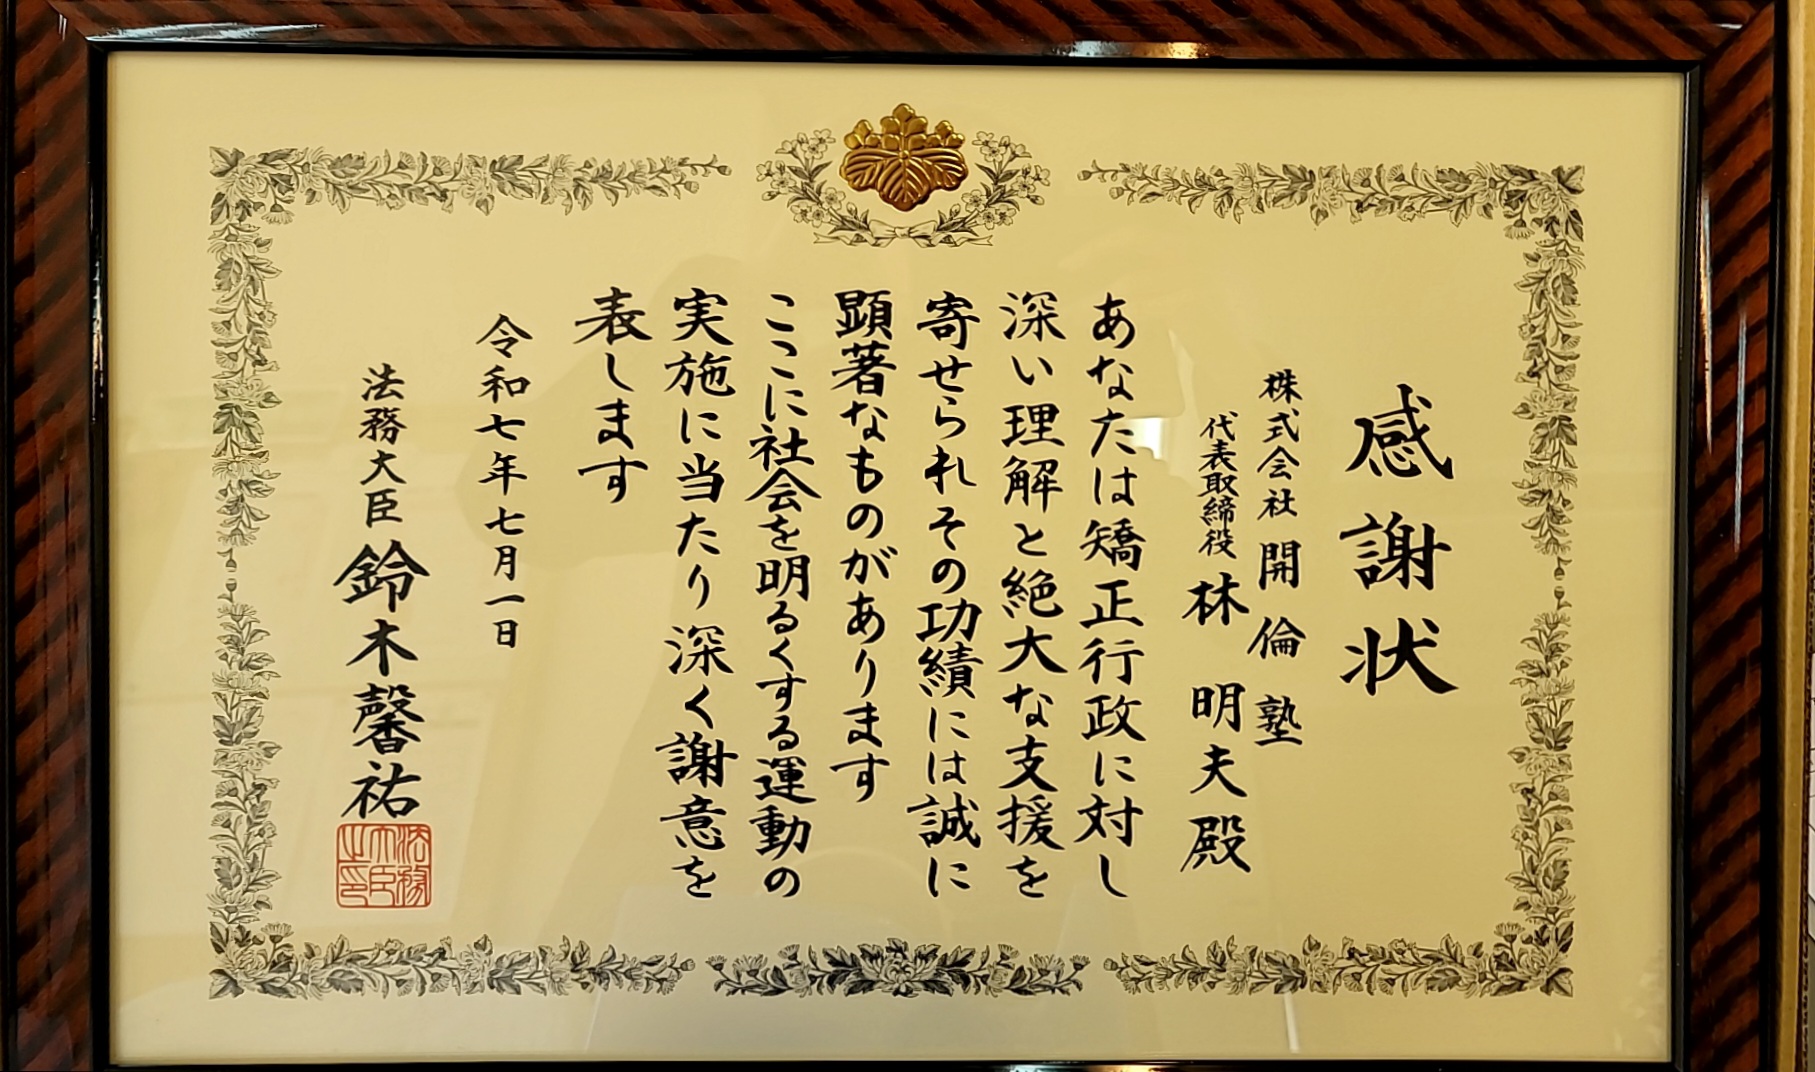 感謝状
株式会社 開倫塾
代表取締役 林 明夫 殿
あなたは矯正行政に対し
深い理解と絶大な支援を
寄せられその功績には誠に
顕著なものがあります
ここに社会を明るくする運動の
実施に当たり深く謝意を
表します
令和七年七月一日
法務大臣 鈴木馨祐
法務
大臣
之印